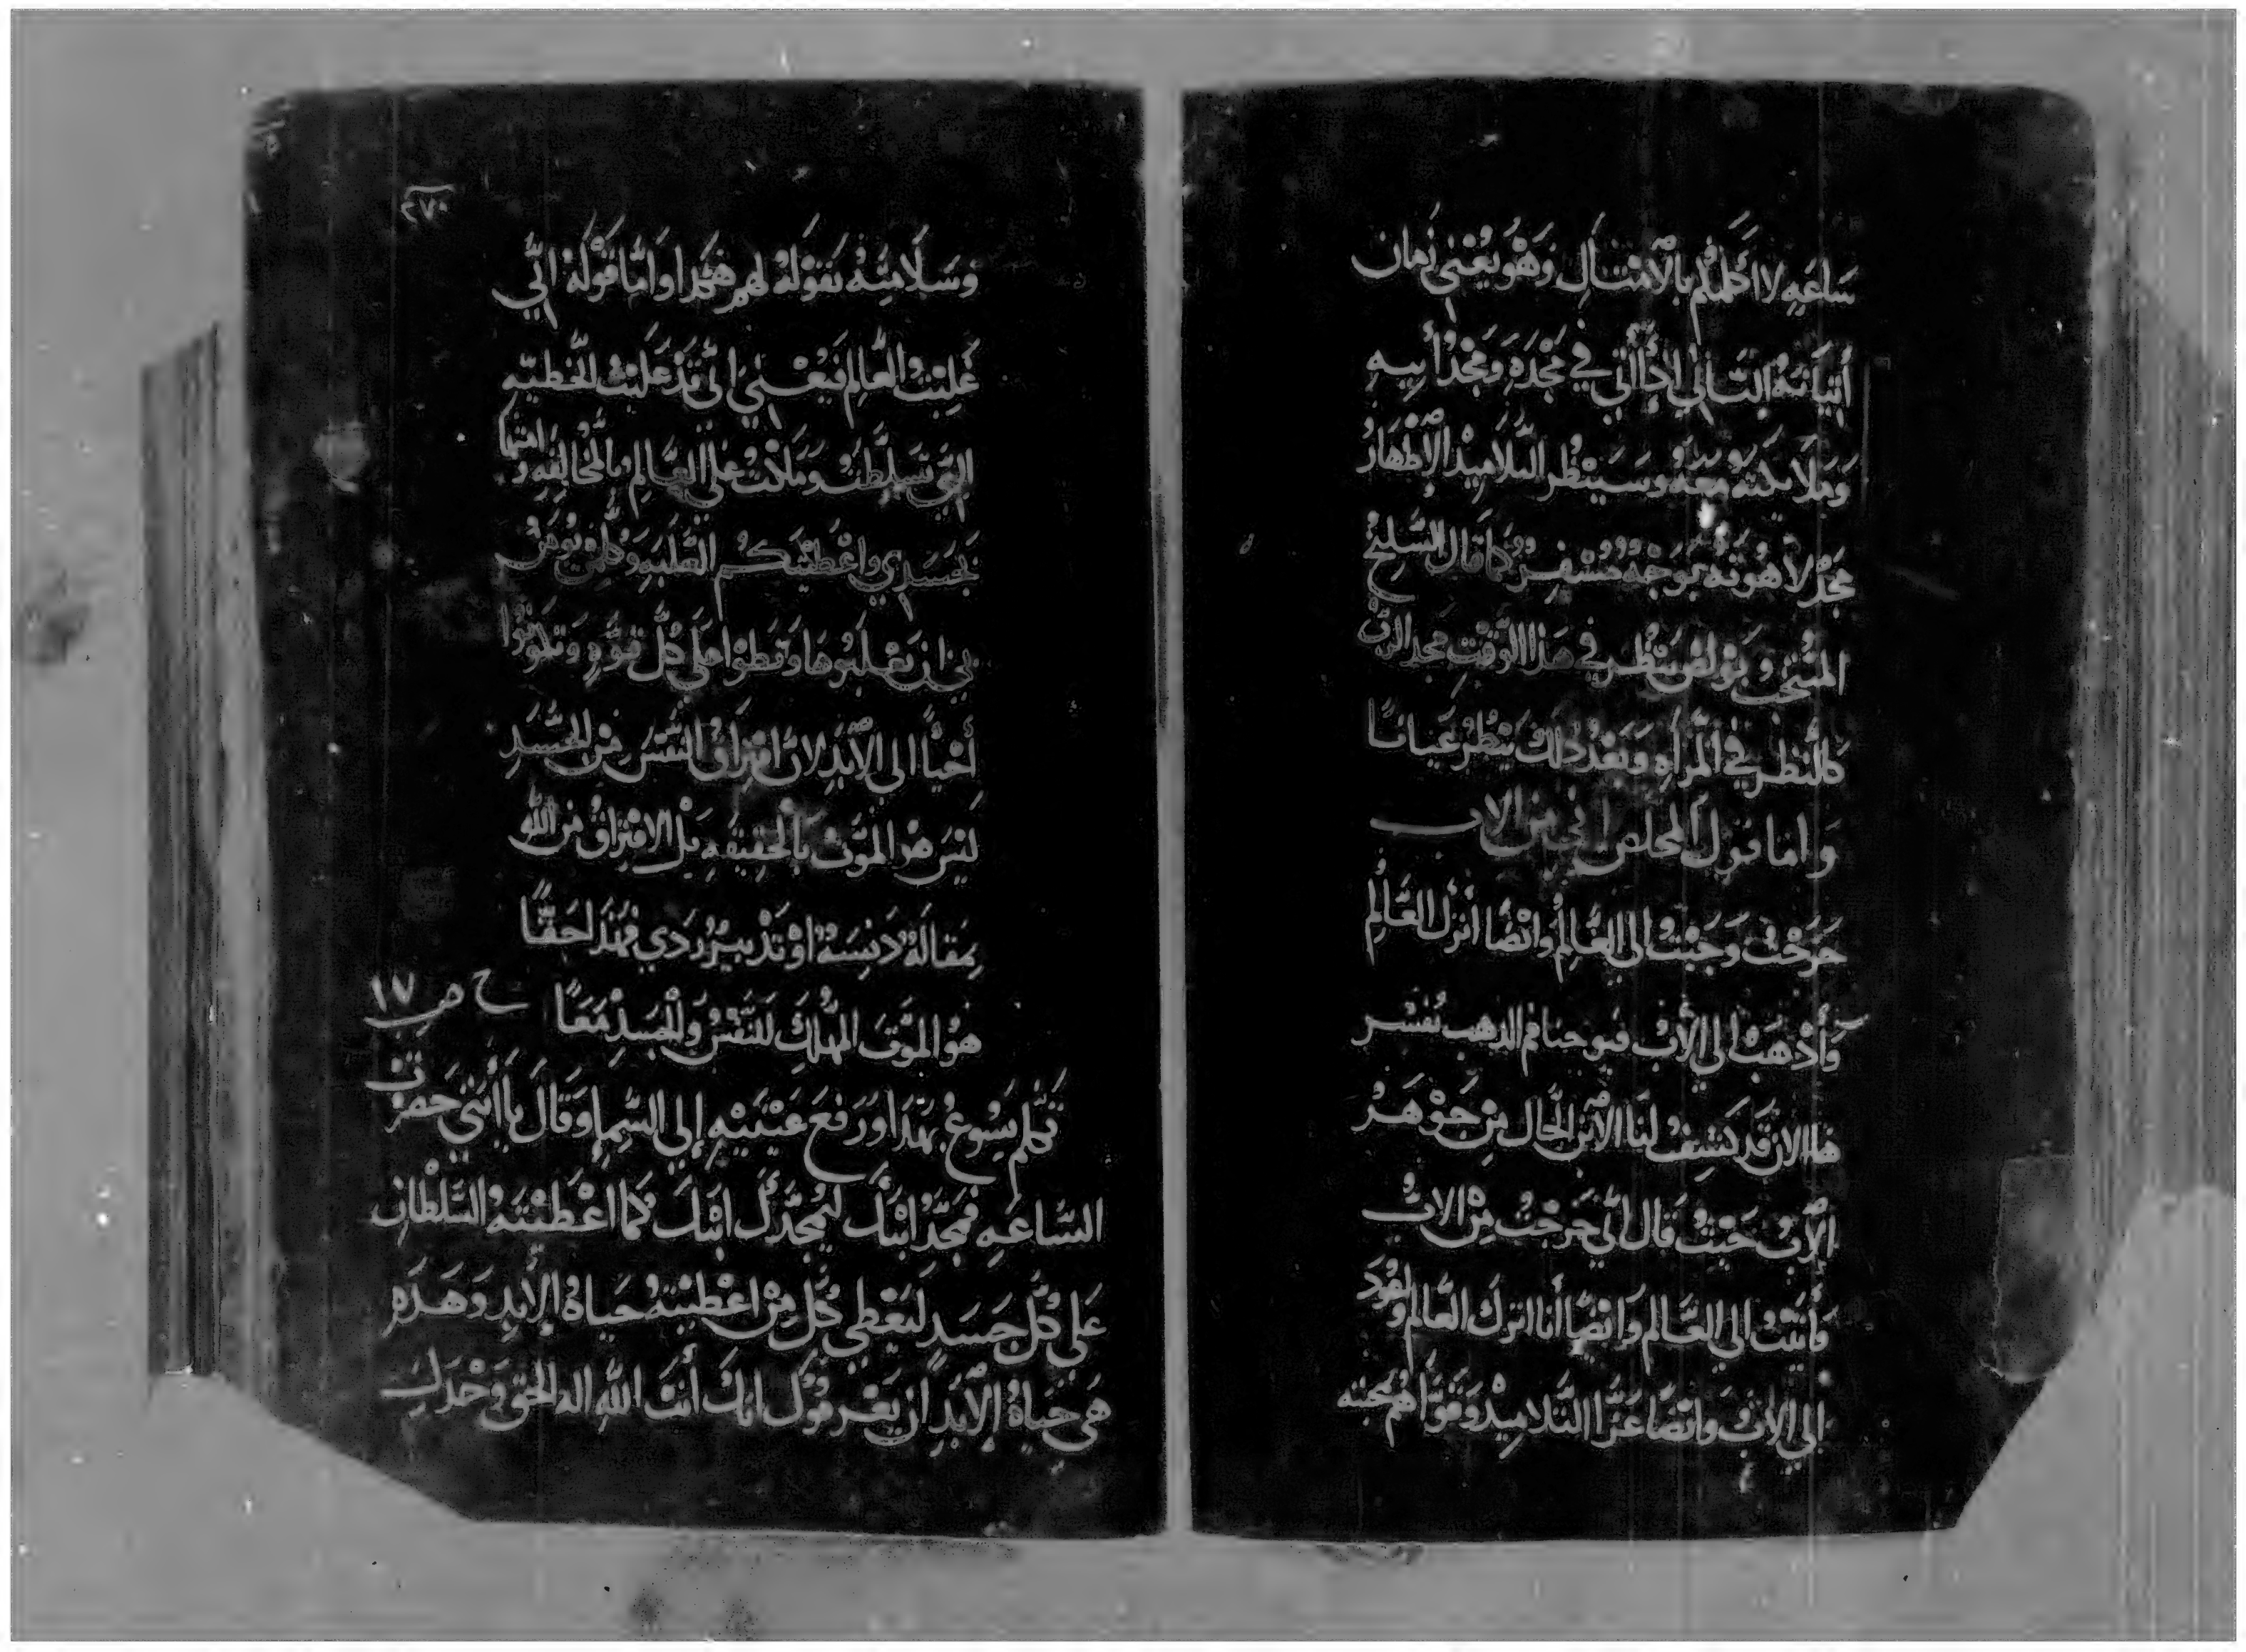 سَاعَه لا اكلمكم بالامتال وَهُو يعْني زمان
أتيَانه التاني لانه اتي في مَجْدَه وَمَجْد أبيهِ
وَملايكته معَه وسَينظر التلاميد الاطهَار
مجد لاهُوته بوجْه مسْفِر كما قال السَليح
المنتخب بولص ننظر في هَذا الوقت مجد الرب
كالنظر في المرآه وَبَعْد دلك ينظر عَيانا
وَاما قول المخلص اني من الاب
خرَجْت وَجيْت الى العَالم وايْضًا أترك العَالم
وَأذهَبْ الي الآب فيوحنا فم الدهب يفسْر
هَا الان قد كشف لنَا الابن الحَال من جَوْهَر
الاب حَيت قال اني خَرجْت مِن الاب
وَأتيْت الي العَالم وَايضًا أنا اترك العَالم وَاعُود
الي الاب وَايضًا عَزا التَلاميدْ وَقوَاهُم بمحبته
٢٧٠
وَسَلامته بقوله لهم هَكدا وَامَّا قَوْله اني
غلبْتُ العَالم فيَعْني اني قَدْ غَلبْت الخطيّه
التي تسَلطت وَملكت علي العَالم بالمخالفه
بجسَدي وَاعْطيتكم الغلبَه وَكل من يومن
بي ان يَغلبوهَا وَتطوا على كل قوّه وَتكونوا
أحْيآ الى الابَدِ لان افتِراق النفسْ مِن الجسَدِ
ليْسَ هو الموْت بالحقيقهِ بَل الافتِراق من الله
بمَقالة دَنسَة اوْ تدْبير رَدي فهَدَا حَقًا
هوَ الموْت المهْلك للنَفسْ وَالجسَدْ مَعًا
ح ص ١٧
تكلم يَسُوعْ بهَدَا وَرَفعَ عَيْنيْهِ إلي السَّما وَقالَ يا أبتي حَضرَت
السَّاعَهِ فمجّدْ ابْنك ليُمجّدَك ابْنكَ كمَا اعْطيْتَهُ السّلطان
عَلى كل جَسَد ليُعْطي كل مِن اعْطيْته حَياةُ الأبَدِ وَهَدَه
هَي حَيَاةُ الأبَدِ أن يَعْرفوك انك أنت الله اله الحَق وَحْدَك